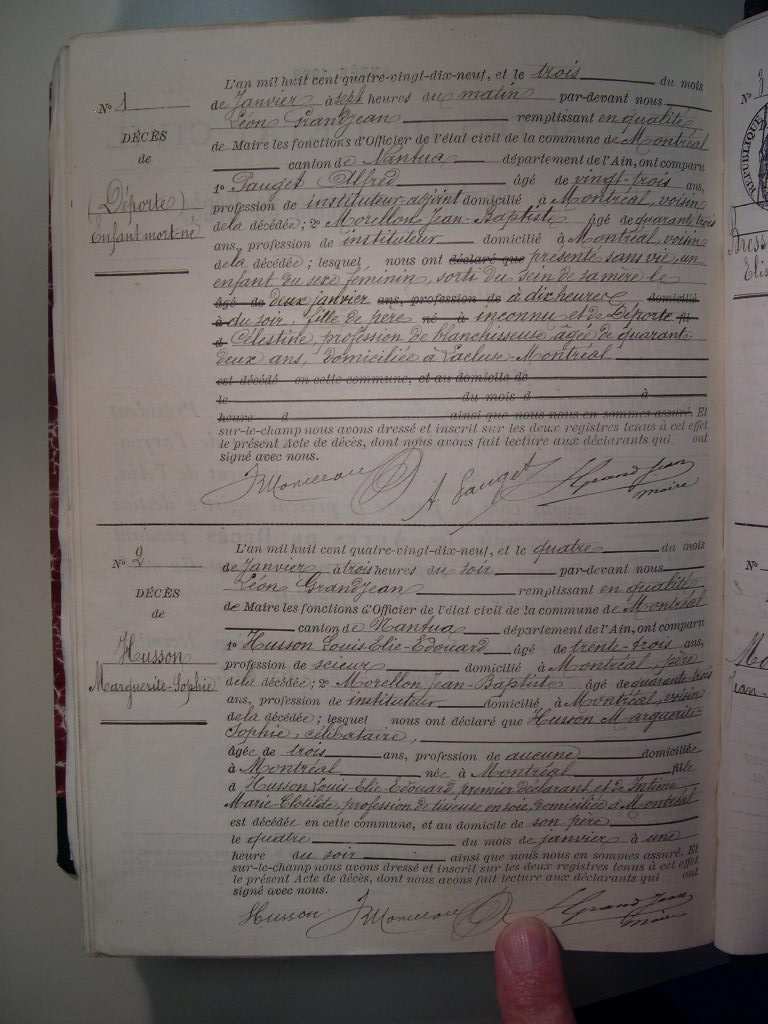 No 1
DÉCÈS
de
(Déporte)
Enfant mort-né
L'an mil huit cent quatre-vingt-dix-neuf, et le trois du mois
de Janvier à sept heures du matin par-devant nous
Léon Grandjean remplissant en qualité
de Maire les fonctions d'Officier de l'état civil de la commune de Montréal
canton de Nantua département de l'Ain, ont comparu
1o Pauget Alfred âgé de vingt-trois ans,
profession de instituteur-adjoint domicilié à Montréal, voisin
de la décédée; 2o Morellon Jean-Baptiste âgé de quarant-trois
ans, profession de instituteur domicilié à Montréal, voisin
de la décédée; lesquel nous ont déclaré que présenté sans vie, un
enfant du sexe féminin, sorti du sein de sa mère le
âgé de deux janvier ans, profession de à dix heures domicilié
à du soir, fille de père né à inconnu et de Déporte fil
d Célestine, profession de blanchisseuse, âgée de quarant-
deux ans, domiciliée à Montréal
est décédé en cette commune, et au domicile de
le du mois d à
heure d ainsi que nous nous en sommes assuré. Et
sur-le-champ nous avons dressé et inscrit sur les deux registres tenus à cet effet
le présent Acte de décès, dont nous avons fait lecture aux déclarants qui ont
signé avec nous.
A Pauget Grand Jean
maire
No 2
DÉCÈS
de
Husson
Marguerite-Sophie
L'an mil huit cent quatre-vingt-dix-neuf, et le quatre du mois
de Janvier à trois heures du soir par-devant nous
Léon Grandjean remplissant en qualité
de Maire les fonctions d'Officier de l'état civil de la commune de Montréal
canton de Nantua département de l'Ain, ont comparu
1o Husson Louis-Elie-Edouard âgé de trente-trois ans,
profession de scieur domicilié à Montréal, père
de la décédée; 2o Morellon Jean-Baptiste âgé de quarante-trois
ans, profession de instituteur domicilié à Montréal, voisin
de la décédée; lesquel nous ont déclaré que Husson Marguerite-
Sophie, célibataire,
âgée de trois ans, profession de aucune domiciliée
à Montréal née à Montréal fille
d Husson Louis-Elie-Edouard, premier déclarant et de
Marie-Clotilde, profession de tisseuse en soie, domiciliée à Montréal
est décédée en cette commune, et au domicile de son père
le quatre du mois de janvier à une
heure du soir ainsi que nous nous en sommes assuré. Et
sur-le-champ nous avons dressé et inscrit sur les deux registres tenus à cet effet
le présent Acte de décès, dont nous avons fait lecture aux déclarants qui ont
signé avec nous.
Husson Grand Jean
maire
No 3
RÉPUBLIQUE